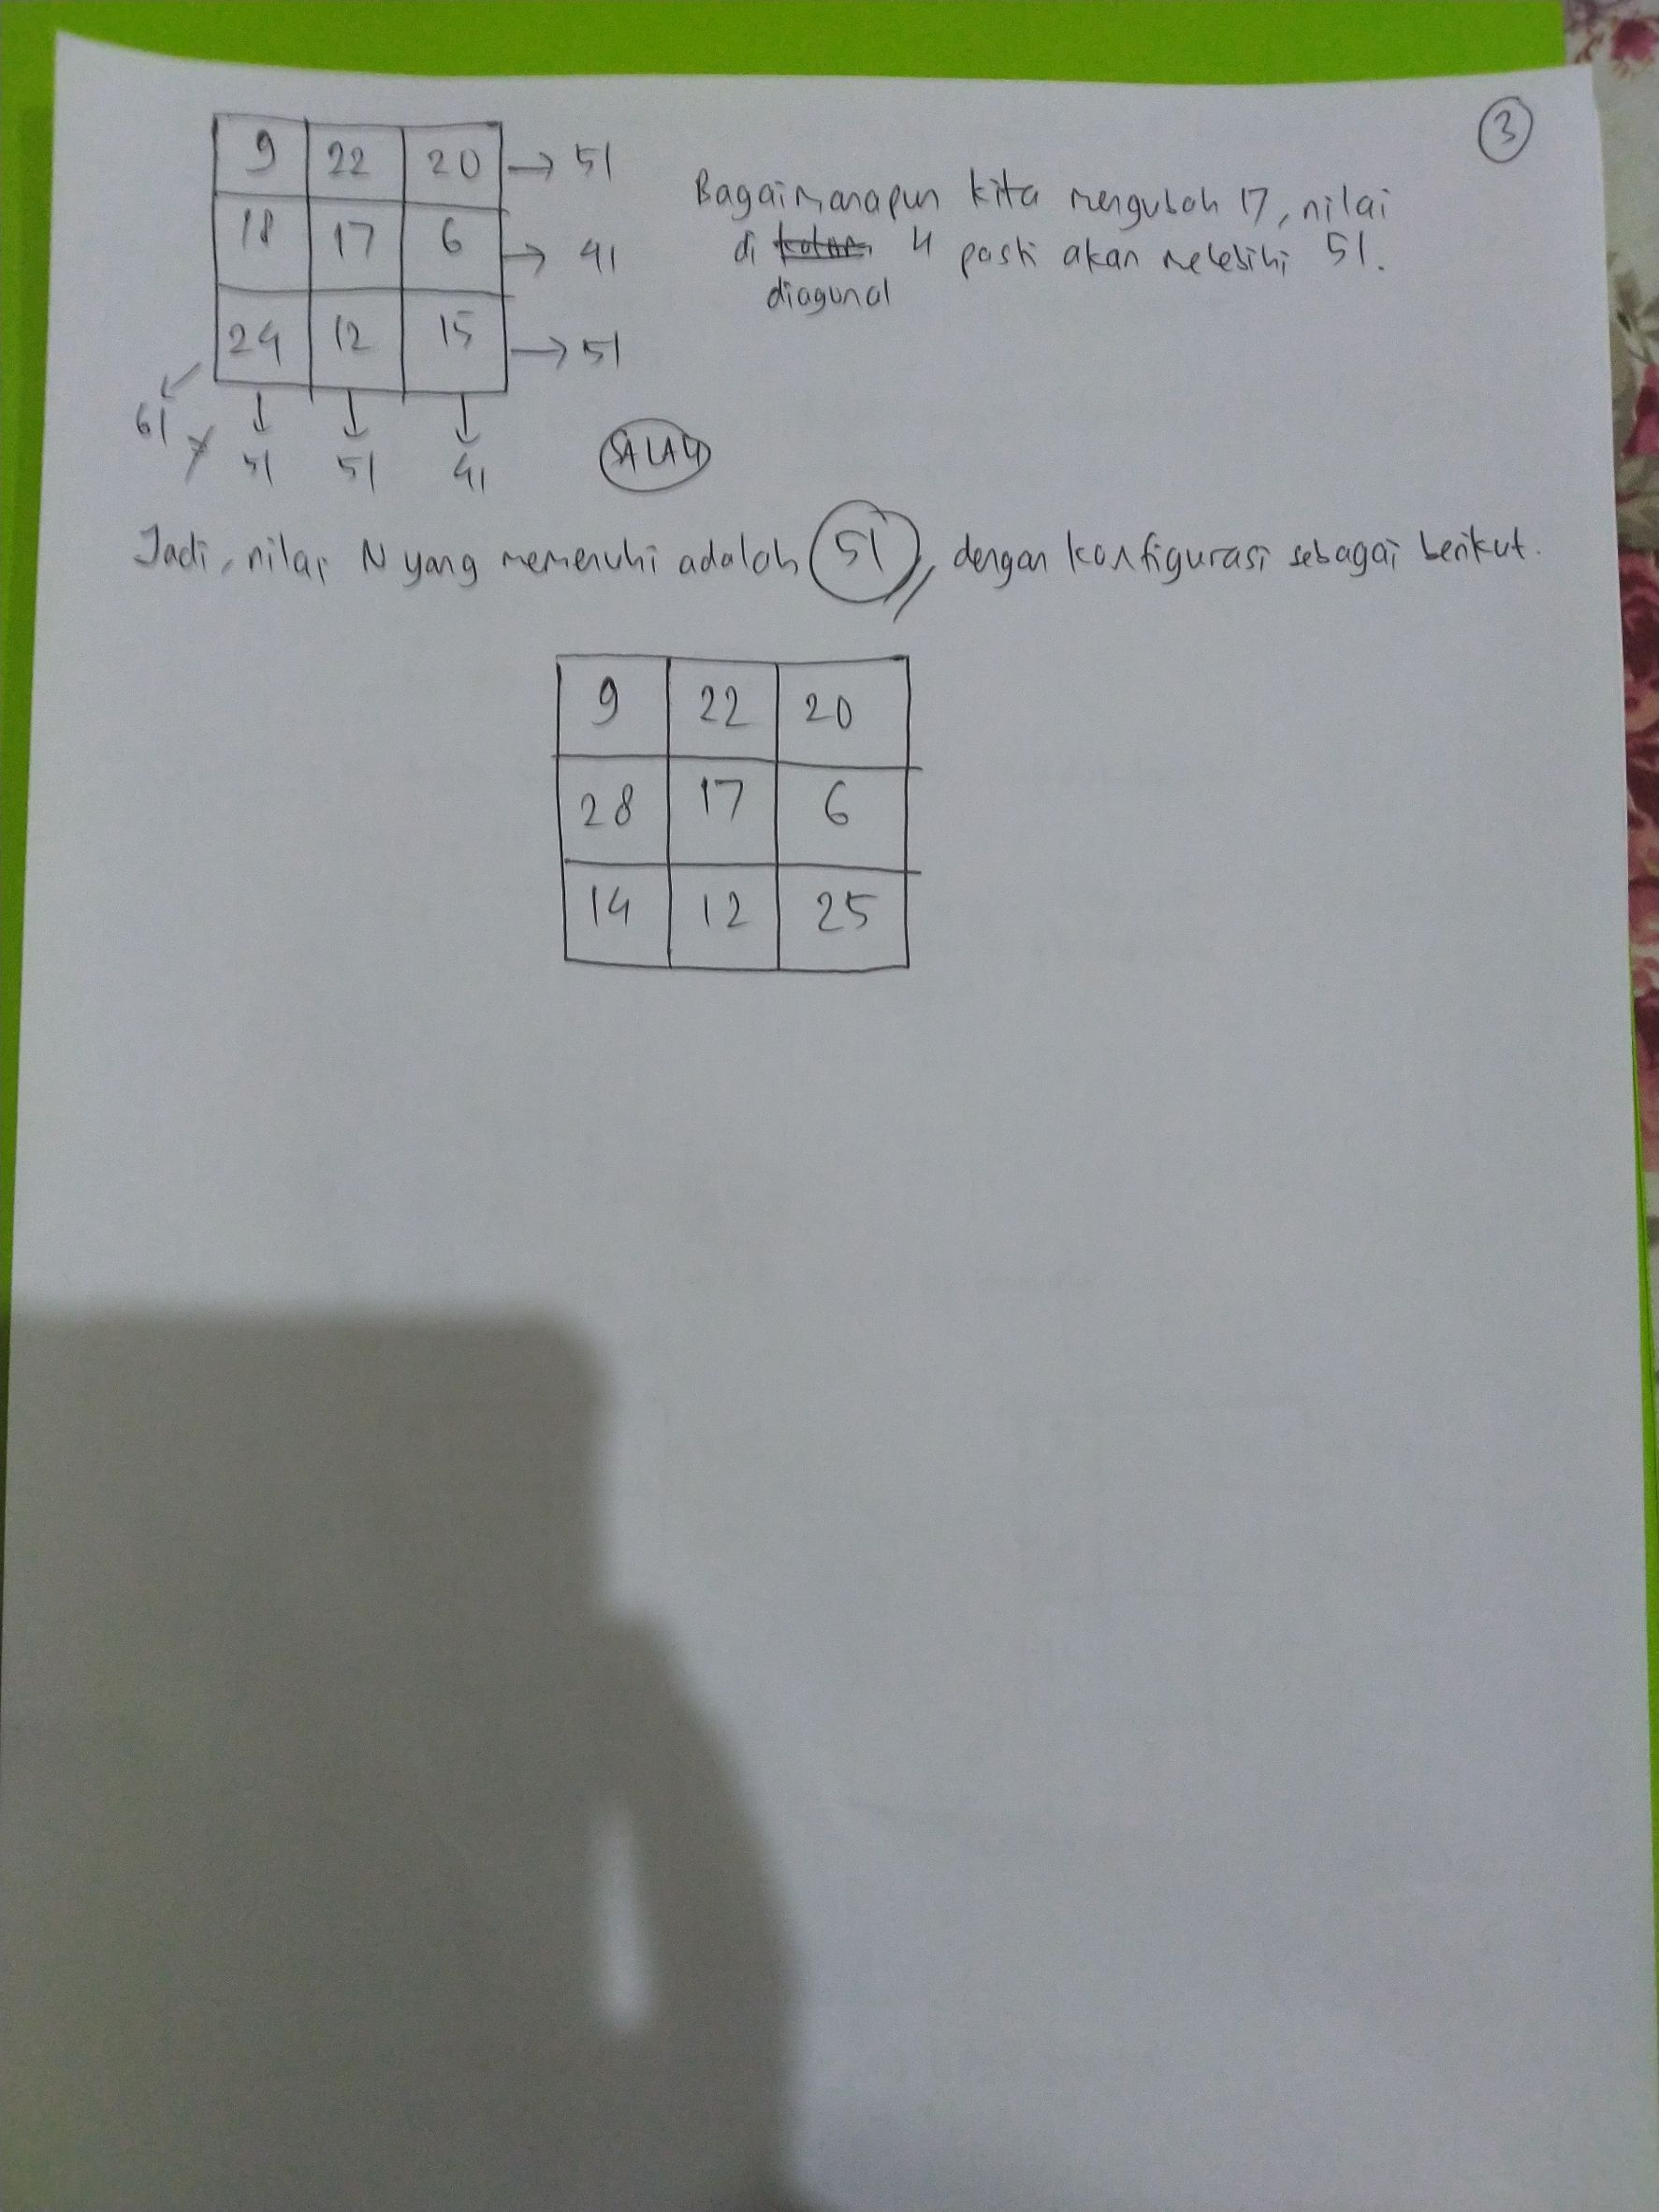 3
9 22 20 → 51
18 17 6 → 41
24 12 15 → 51
61 51 51 41
Bagaimanapun kita mengubah 17, nilai
di 4 pasti akan melebihi 51.
diagonal
SALAH
Jadi, nilai N yang memenuhi adalah 51, dengan konfigurasi sebagai berikut.
9 22 20
28 17 6
14 12 25